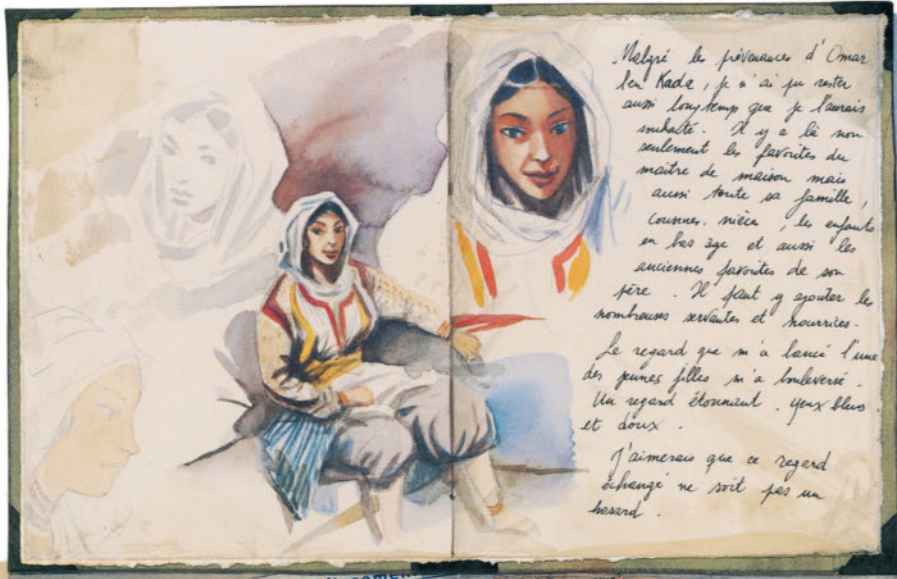 Malgré les prévenances d'Omar
ben Kada, je n'ai pu rester
aussi longtemp que je l'aurais
souhaité. Il y a là non
seulement les favorites du
maître de maison mais
aussi toute sa famille,
cousines. nièces, les enfants
en bas âge et aussi les
anciennes favorites de son
père. Il faut y ajouter les
nombreuses servantes et nourrices.
Le regard que m'a lancé l'une
des jeunes filles m'a bouleversé.
Un regard étonnant. yeux bleus
et doux.
J'aimerais que ce regard
échangé ne soit pas un
hasard.